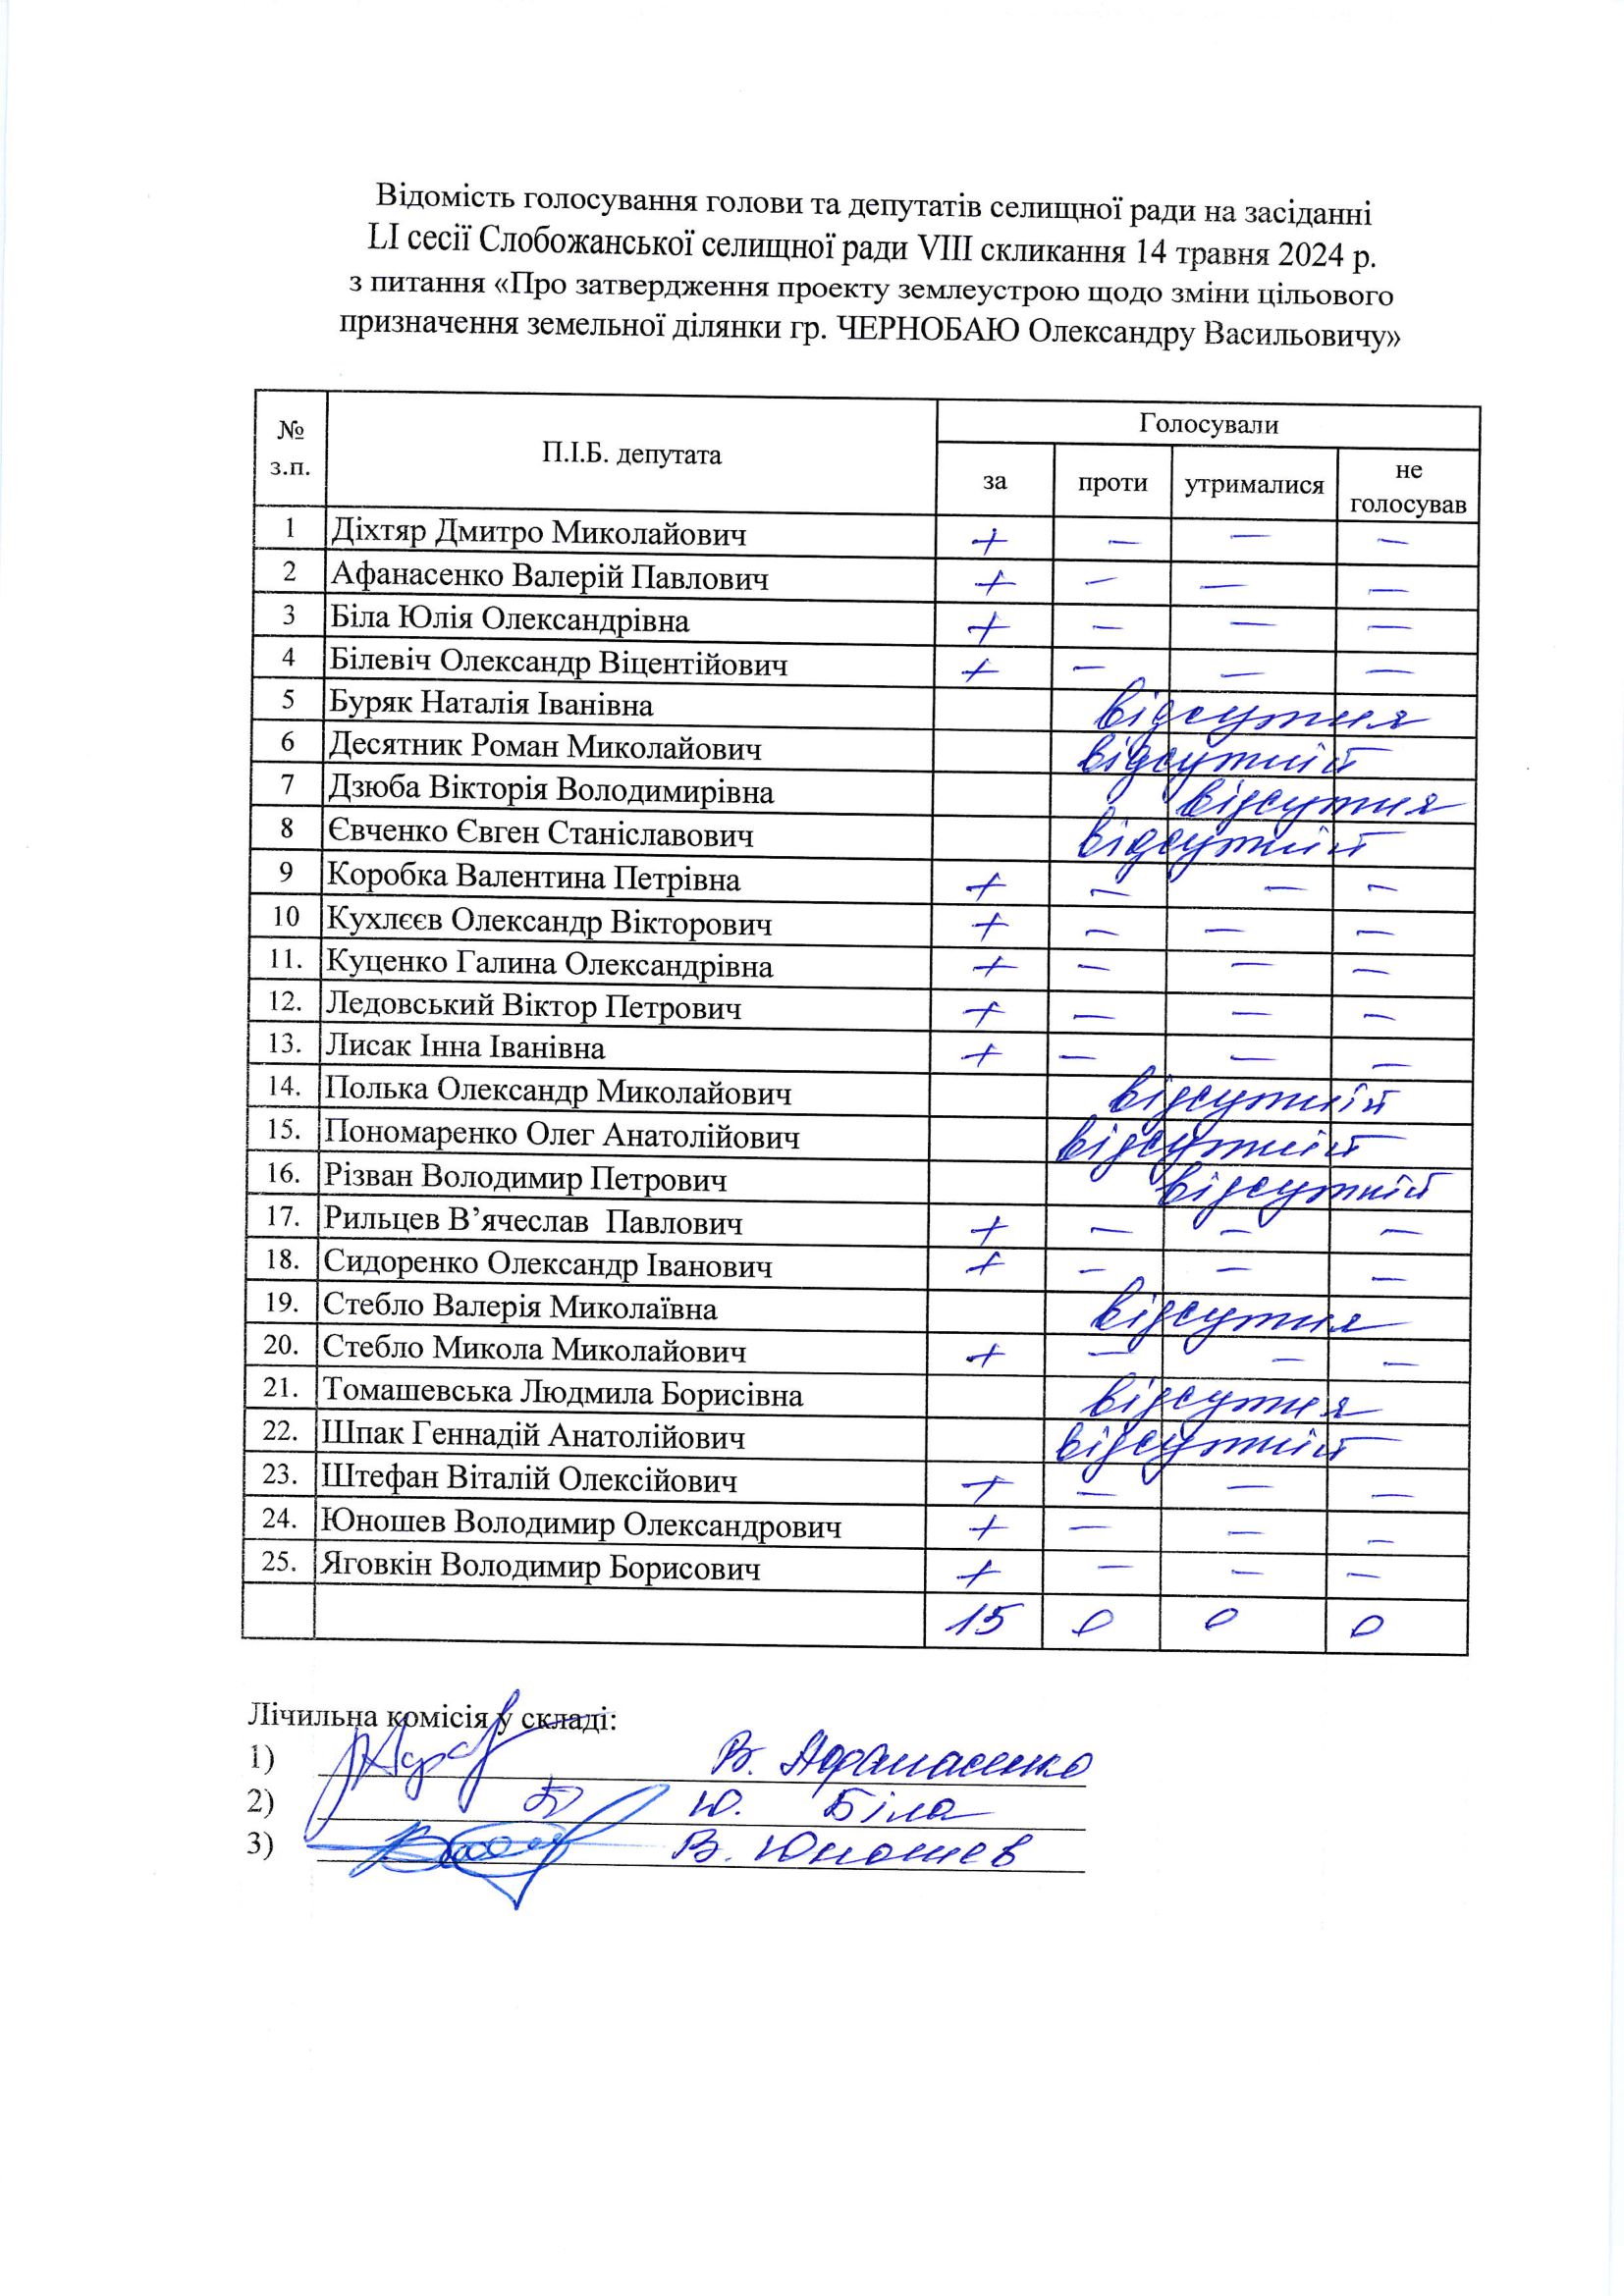 Відомість голосування голови та депутатів селищної ради на засіданні
LI сесії Слобожанської селищної ради VIII скликання 14 травня 2024 р.
з питання «Про затвердження проекту землеустрою щодо зміни цільового
призначення земельної ділянки гр. ЧЕРНОБАЮ Олександру Васильовичу»
№ з.п. П.І.Б. депутата Голосували
за проти утрималися не голосував
1 Діхтяр Дмитро Миколайович + – – –
2 Афанасенко Валерій Павлович + – – –
3 Біла Юлія Олександрівна + – – –
4 Білевіч Олександр Віцентійович + – – –
5 Буряк Наталія Іванівна відсутня
6 Десятник Роман Миколайович відсутній
7 Дзюба Вікторія Володимирівна відсутня
8 Євченко Євген Станіславович відсутній
9 Коробка Валентина Петрівна + – – –
10 Кухлєєв Олександр Вікторович + – – –
11. Куценко Галина Олександрівна + – – –
12. Ледовський Віктор Петрович + – – –
13. Лисак Інна Іванівна + – – –
14. Полька Олександр Миколайович відсутній
15. Пономаренко Олег Анатолійович відсутній
16. Різван Володимир Петрович відсутній
17. Рильцев В’ячеслав Павлович + – – –
18. Сидоренко Олександр Іванович + – – –
19. Стебло Валерія Миколаївна відсутня
20. Стебло Микола Миколайович + – – –
21. Томашевська Людмила Борисівна відсутня
22. Шпак Геннадій Анатолійович відсутній
23. Штефан Віталій Олексійович + – – –
24. Юношев Володимир Олександрович + – – –
25. Яговкін Володимир Борисович + – – –
15 0 0 0
Лічильна комісія у складі:
1) В. Афанасенко
2) Ю. Біла
3) В. Юношев